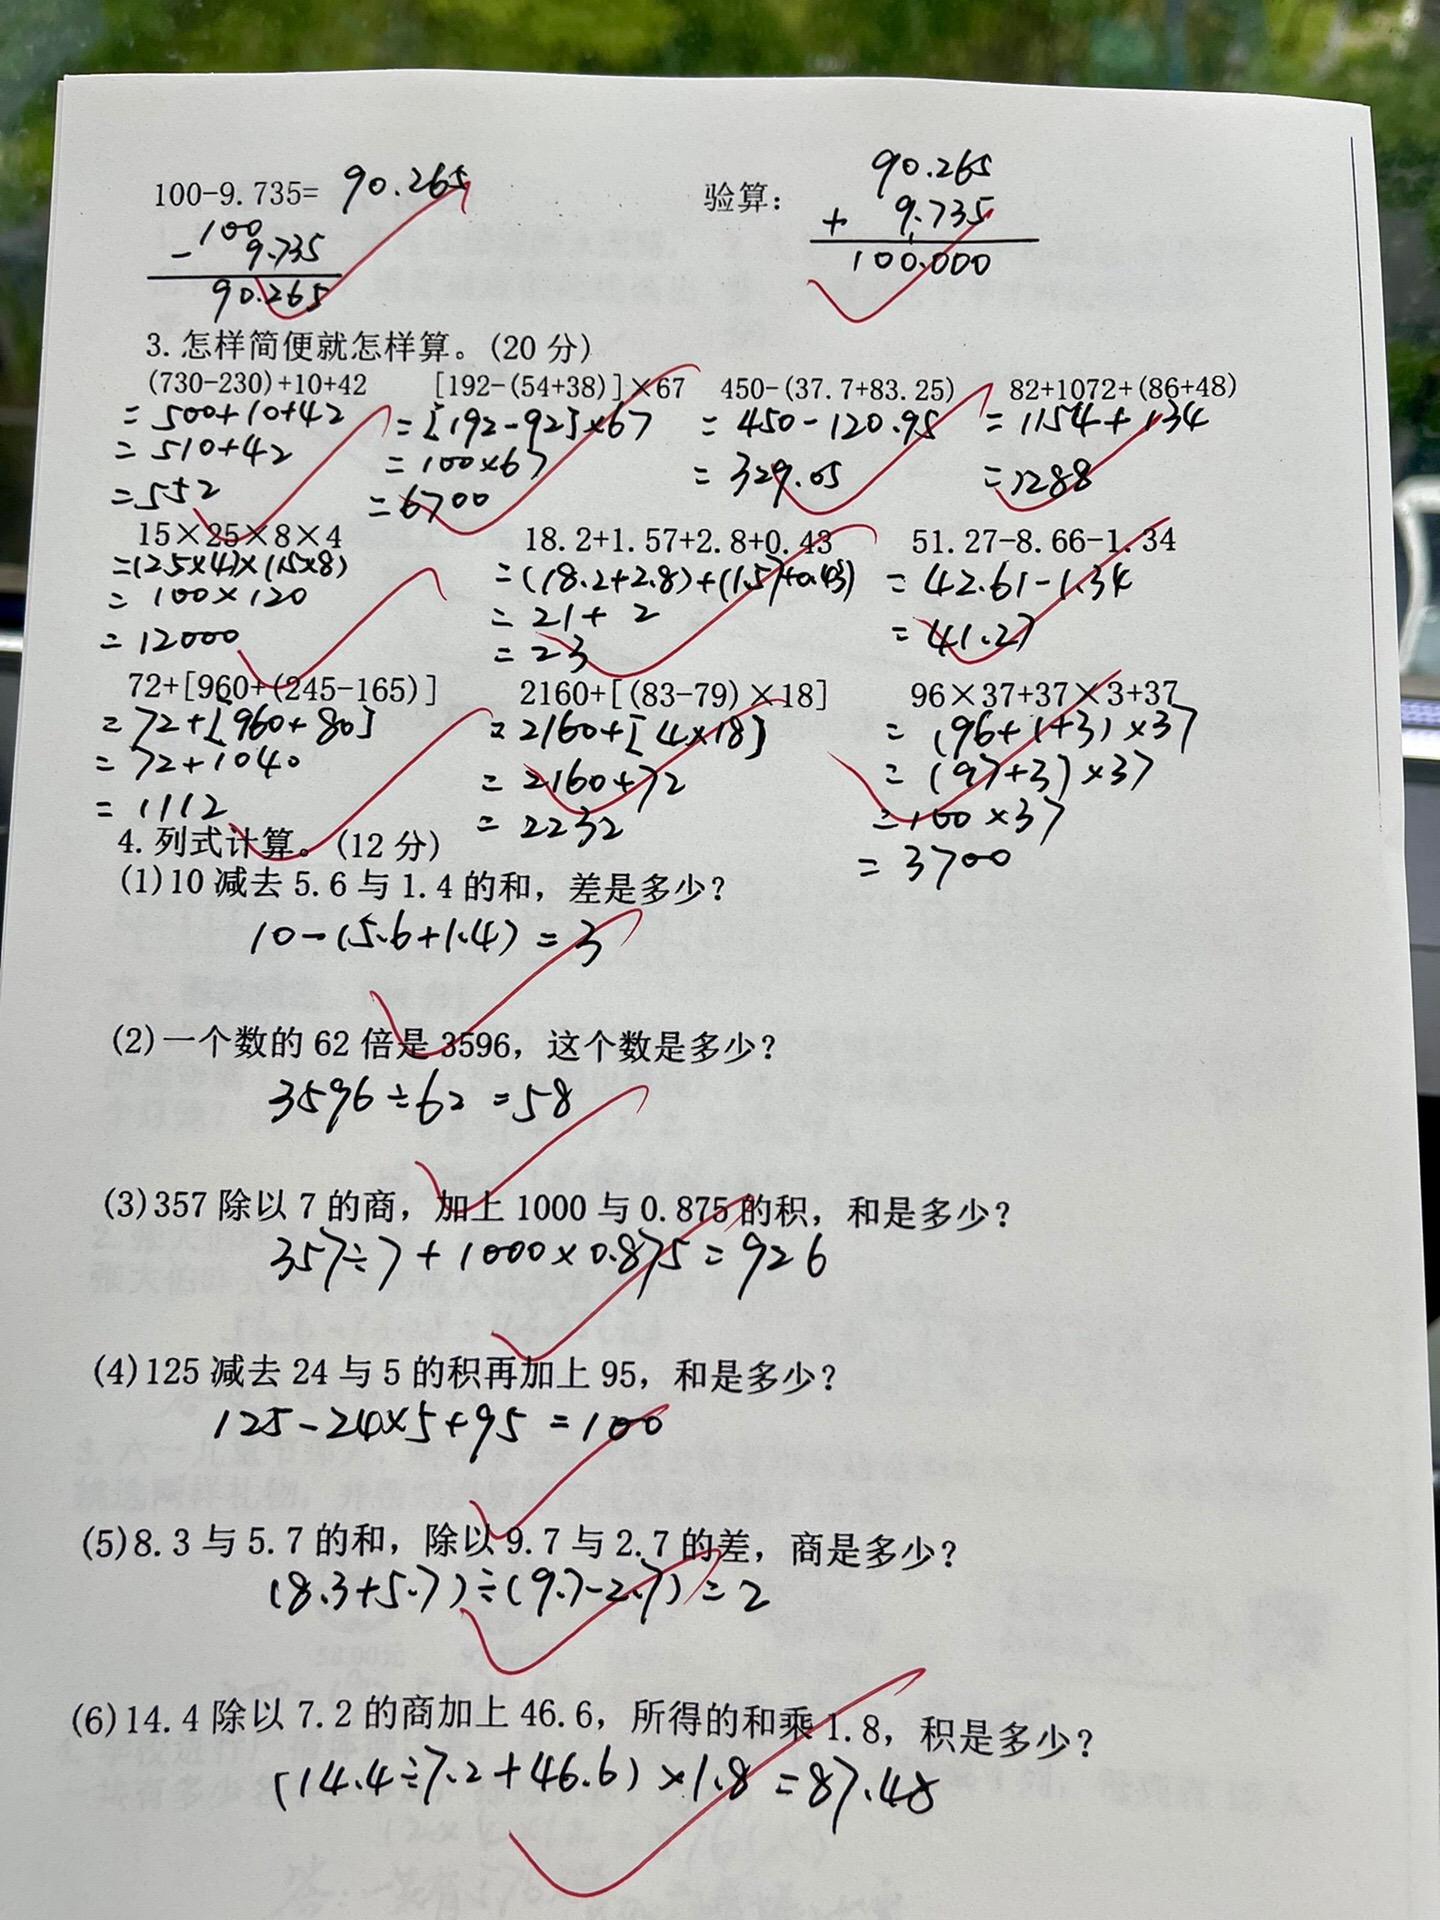 100-9.735= 90.265 验算: 90.265
100 + 9.735
- 9.735 100.000
90.265
3.怎样简便就怎样算。(20分)
(730-230)+10+42 [192-(54+38)]×67 450-(37.7+83.25) 82+1072+(86+48)
=500+10+42 =[192-92]×67 =450-120.95 =1154+134
=510+42 =100×67 =329.05 =1288
=552 =6700
15×25×8×4 18.2+1.57+2.8+0.43 51.27-8.66-1.34
=(25×4)×(15×8) =(18.2+2.8)+(1.57+0.43) =42.61-1.34
=100×120 =21+2 =41.27
=12000 =23
72+[960+(245-165)] 2160+[(83-79)×18] 96×37+37×3+37
=72+[960+80] =2160+[4×18] =(96+1+3)×37
=72+1040 =2160+72 =(97+3)×37
=1112 =2232 =100×37
4.列式计算。(12分) =3700
(1)10减去5.6与1.4的和，差是多少?
10-(5.6+1.4)=3
(2)一个数的62倍是3596，这个数是多少?
3596÷62=58
(3)357除以7的商，加上1000与0.875的积，和是多少?
357÷7+1000×0.875=926
(4)125减去24与5的积再加上95，和是多少?
125-24×5+95=100
(5)8.3与5.7的和，除以9.7与2.7的差，商是多少?
(8.3+5.7)÷(9.7-2.7)=2
(6)14.4除以7.2的商加上46.6，所得的和乘1.8，积是多少?
(14.4÷7.2+46.6)×1.8=87.48